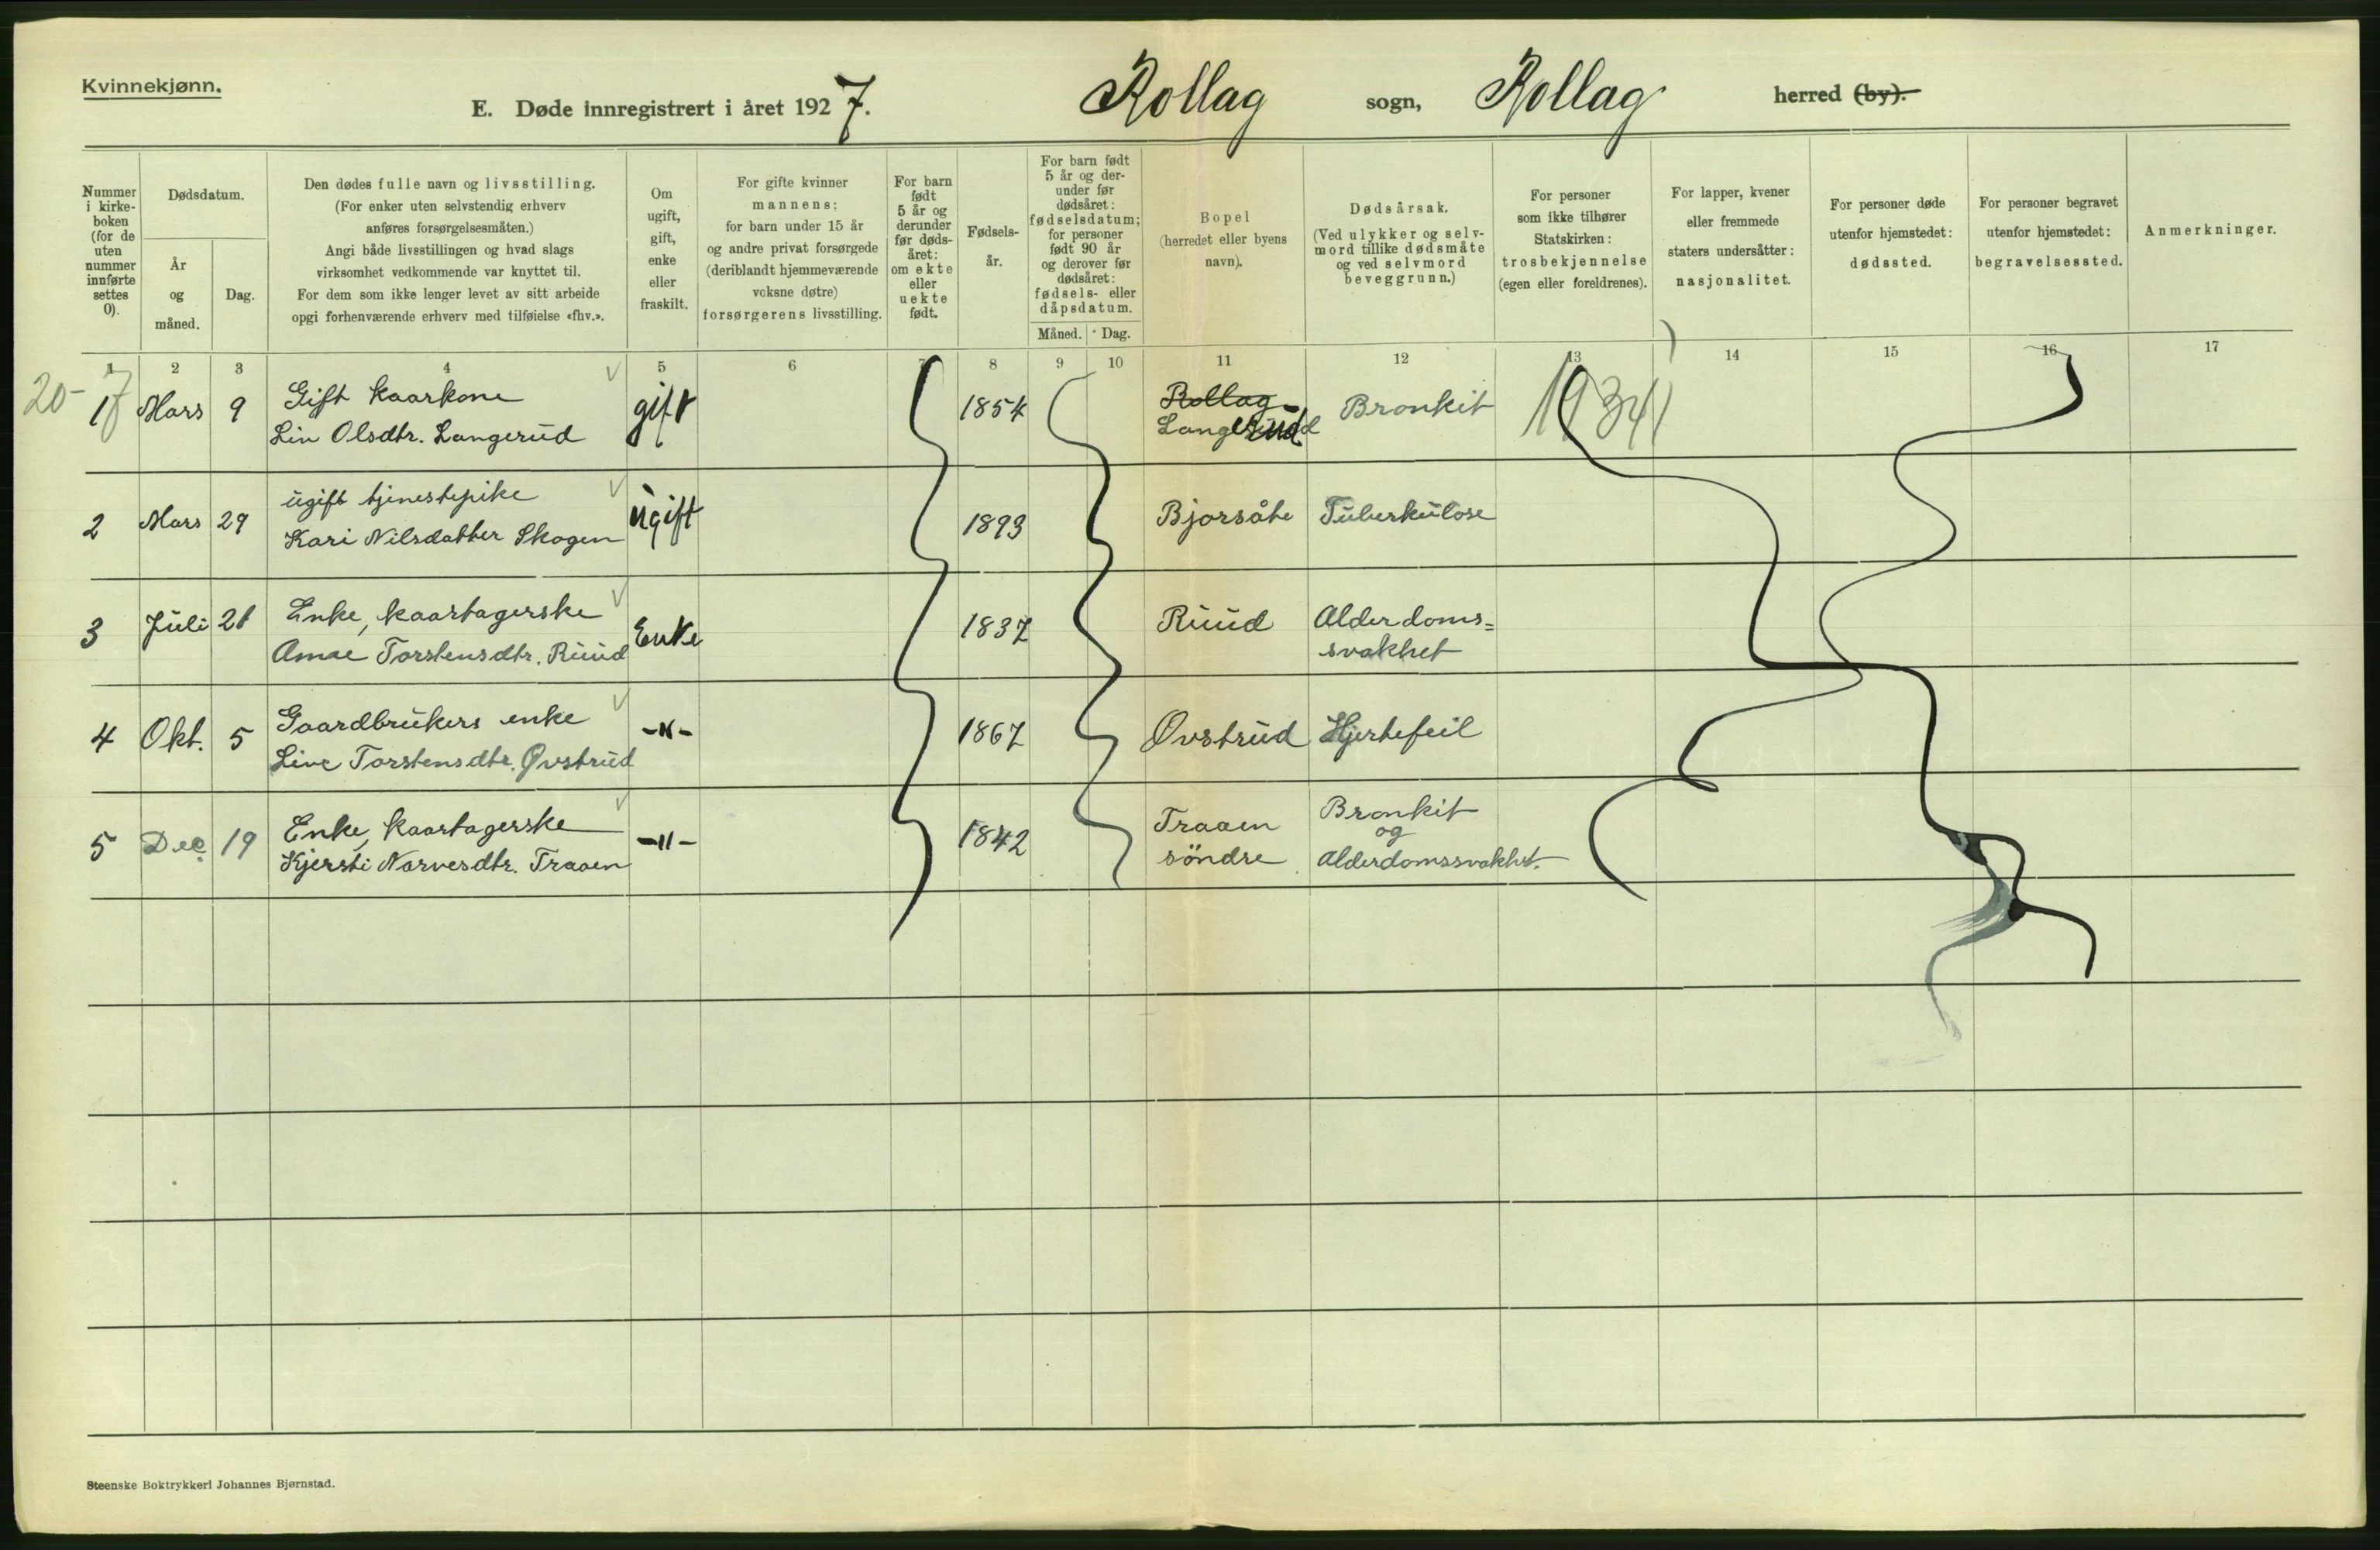 Kvinnekjønn.
E. Døde innregistrert i året 1927. Rollag sogn, Rollag herred (by).
Nummer i kirke-boken (for de uten nummer innførte settes 0).
Dødsdatum.
År og måned.
Dag.
Den dødes fulle navn og livsstilling.
(For enker uten selvstendig erhverv
anføres forsørgelsesmåten.)
Angi både livsstillingen og hvad slags
virksomhet vedkommende var knyttet til.
For dem som ikke lenger levet av sitt arbeide
opgi forhenværende erhverv med tilføielse «fhv.».
Om
ugift,
gift,
enke
eller
fraskilt.
For gifte kvinner
mannens;
for barn under 15 år
og andre privat forsørgede
(deriblandt hjemmeværende
voksne døtre)
forsørgerens livsstilling.
For barn
født
5 år og
derunder
før døds-
året:
om ekte
eller
uekte
født.
Fødsels-
år.
For barn født
5 år og der-
under før
dødsåret:
fødselsdatum;
for personer
født 90 år
og derover før
dødsåret:
fødsels- eller
dåpsdatum.
Måned. Dag.
Bopel
(herredet eller byens
navn).
Dødsårsak.
(Ved ulykker og selv-
mord tillike dødsmåte
og ved selvmord
beveggrunn.)
For personer
som ikke tilhører
Statskirken:
trosbekjennelse
(egen eller foreldrenes).
For lapper, kvener
eller fremmede
staters undersåtter:
nasjonalitet.
For personer døde
utenfor hjemstedet:
dødssted.
For personer begravet
utenfor hjemstedet:
begravelsessted.
Anmerkninger.
1 2 3 4 5 6 7 8 9 10 11 12 13 14 15 16 17
20-7
1 Mars 9 Gift kaarkone gift 1854 Rollag Bronkit 1934
Lin Olsdtr. Langerud Langerud
2 Mars 29 ugift tjenestepike ugift 1893 Bjorsåte Tuberkulose
Kari Nilsdatter Skogen
3 Juli 21 Enke, kaartagerske Enke 1837 Ruud Alderdoms=
Torstensdtr. Ruud svakhet
4 Okt. 5 Gaardbrukers enke -"- 1867 Øvstrud Hjertefeil
Live Torstensdtr. Øvstrud
5 Dec. 19 Enke, kaartagerske -"- 1842 Traaen Bronkit
og
Kjersti Narvesdtr. Traaen søndre alderdomssvakhet.
Steenske Boktrykkeri Johannes Bjørnstad.